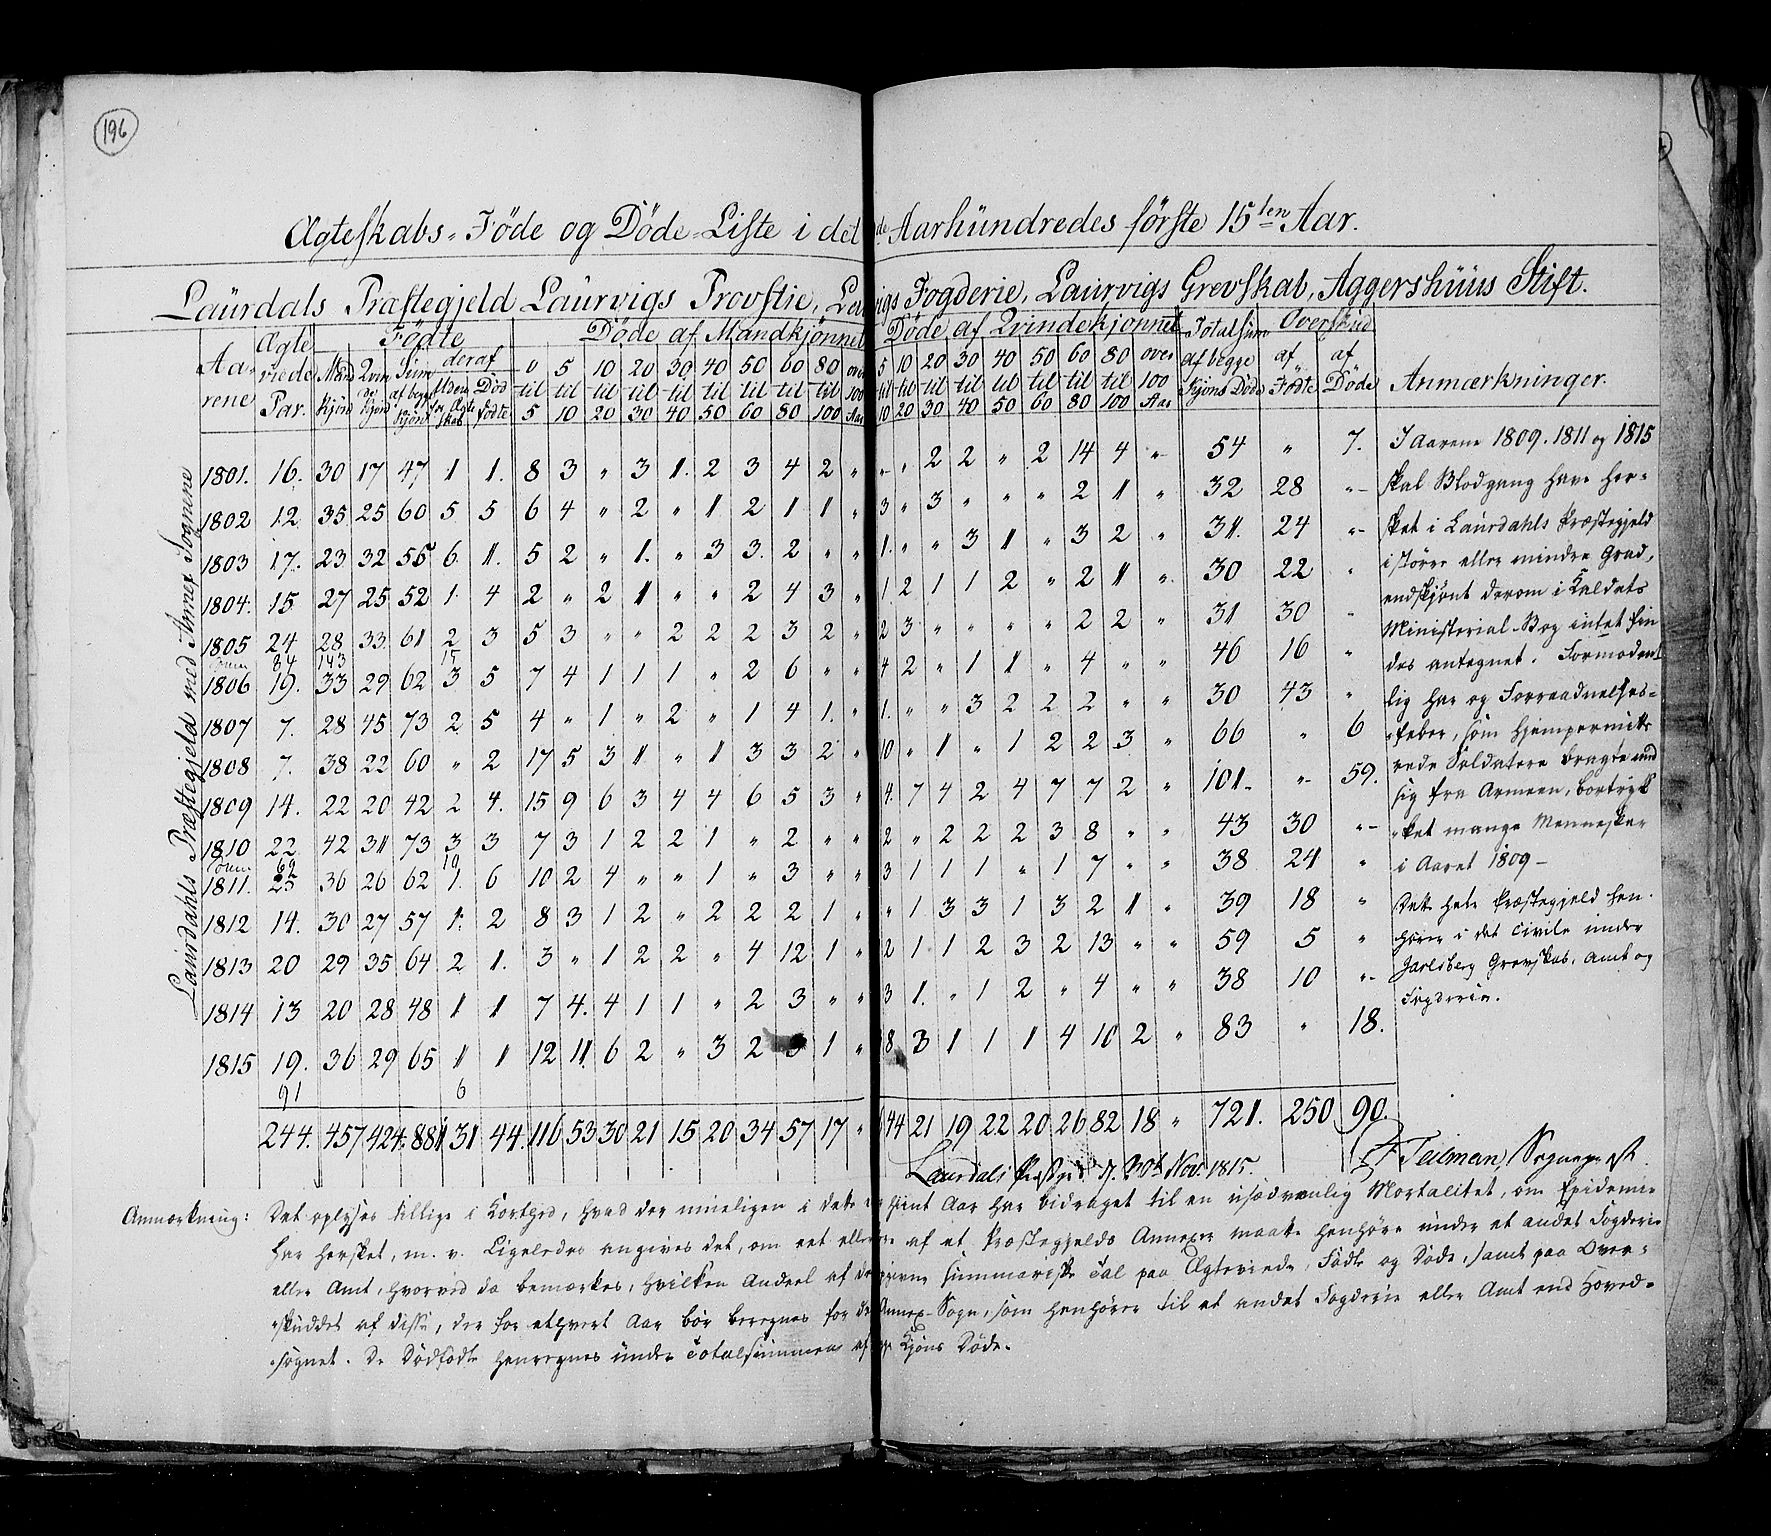 196
Ægteskabs-Föde og Döde-Liste i det de Aarhundredes förste 15ten Aar.
Laurdals Præstegjeld Laurvigs Provstie, Laurvigs Fogderie, Laurvigs Grevskab, Aggershuus Stift.
Laurdahls Præstegjeld med Annex Sognene
Aarene | Ægteviede Par. | Födte | Döde af Mandkjønnet | Döde af Qvindekjønnet | Totalsum af begge Kjøns Døde | Overskud af Födte | af Döde | Anmærkninger.
Mandkjön | Qvindekjön | Sum af begge Kjön | deraf Uden for Ægteskab | Dödfödte | 0 til 5 | 5 til 10 | 10 til 20 | 20 til 30 | 30 til 40 | 40 til 50 | 50 til 60 | 60 til 80 | 80 til 100 | over 100 Aar | 5 til 10 | 10 til 20 | 20 til 30 | 30 til 40 | 40 til 50 | 50 til 60 | 60 til 80 | 80 til 100 | over 100 Aar
1801. 16. 30 17 47 1 1. 8 3 " 3 1. 2 3 4 2 " " " 2 2 " 2 14 4 " 54 " 7.
1802 12 35 25 60 5 5 6 4 " 2 " 1 2 1 1 " 3 " 3 " " " 2 1 " 32 28 "
1803 17. 23 32 55 6. 1. 5 2 " 1. " 3 3. 2 " " 1. " " 3 1 " 3 2 " 31. 24 "
1804. 15 27 25 52 1. 4 2 " 2 1 " " 2 4 3 " 1. 2 1 1 2 " 2 1 " 30 22 "
1805 24 28 33. 61 2 3 5 3 " " 2 2 2 3 2 " 2 3 " " " " 2 2 " 31 30 "
Sum 84 143 15
1806 19. 33 29 62 3 5 7 4 1 1 1 " 2 6 " " 4 2 " 1 1 " 4 " " 46 16 "
1807 7. 28 45 73 2 5 4 " 1 " 2 " 1 4 1. " 1. " " 3 2 2 2 " " 30 43 "
1808 7. 38 22 60 " 2 17 5 3 1 " 1 3 3 2 " 10 " 1 " 1 2 2 3 " 66 " 6
1809 14. 22 20 42 2 4. 15 9 6 3 4 4 6 5 3 " 4. 7 4 2 4 7 7 2 " 101. " 59.
1810 22 42 31 73 3 3 7 3 1 2 2 1 " 2 " " 2 " 2 2 2 3 8 " " 43 30 "
Sum 69 10
1811. 25 36 26 62 1. 6 10 2 4 " " 1 " 3 " " 3 1 1 1 " 1 7 " " 38 24 "
1812 14. 30 27 57 1. 2 8 3 1 2 " 2 2 2 1 " " 1 3 3 1 3 2 1 " 39 18 "
1813 20 29 35 64 2 1. 3 " 1 2 2 " 4 12 1 " 2 1 1 2 3 2 13 " " 59 5 "
1814 13 20 28 48 1 1 7 4. 4 1 1 " 2 3 " " 3 1. " 1 2 " 4 " " 38 10 "
1815 19. 36 29 65 1 1 12 11. 6 2 " 3 2 3 1 " 8 3 1 1 1 4 10 2 " 83 " 18.
91 6
244. 457 424. 881 31 44. 116 53 30 21 15 20 34 57 17 " 44 21 19 22 20 26 82 18 " 721. 250 90.
I Aarene 1809. 1811 og 1815
skal Blodgang have her-
sket i Laurdahls Præstegjeld
i større eller mindre Grad,
endskjönt derom i Kaldets
Ministerial-Bog intet fin
des antegnet. Formodent
lig har og Forraadnelses-
feber, som hjempermitte
rede Soldatere bragte med
sig fra Armeen, bortryk
ket mange Mennesker
i Aaret 1809 –
Det hele Præstegjeld hen-
hører i det Civile under
Jarlsberg Grevskab, Amt og
Fogderie.
Laurdals Præstgd d. 30t Nov. 1815.
Teilman, Sognepræst
Anmærkning: Det oplyses tillige i Korthed, hvad der rimeligen i dette hint Aar har bidraget til en usædvanlig Mortalitet, om Epidemie
har hersket, m. v. Ligeledes angives det, om eet eller af et Præstegjelds Annexer maatte henhøre under et andet Fogderie
eller Amt, hvorved da bemærkes, hvilken Andeel af de givne summariske Tal paa Ægteviede, Födte og Döde, samt paa Over-
skuddet af disse, der for ethvert Aar bör beregnes for det Annex-Sogn, som henhører til et andet Fogderie eller Amt end Hoved-
sognet. De Dödfödte henregnes under Totalsummen af Kjöns Döde.